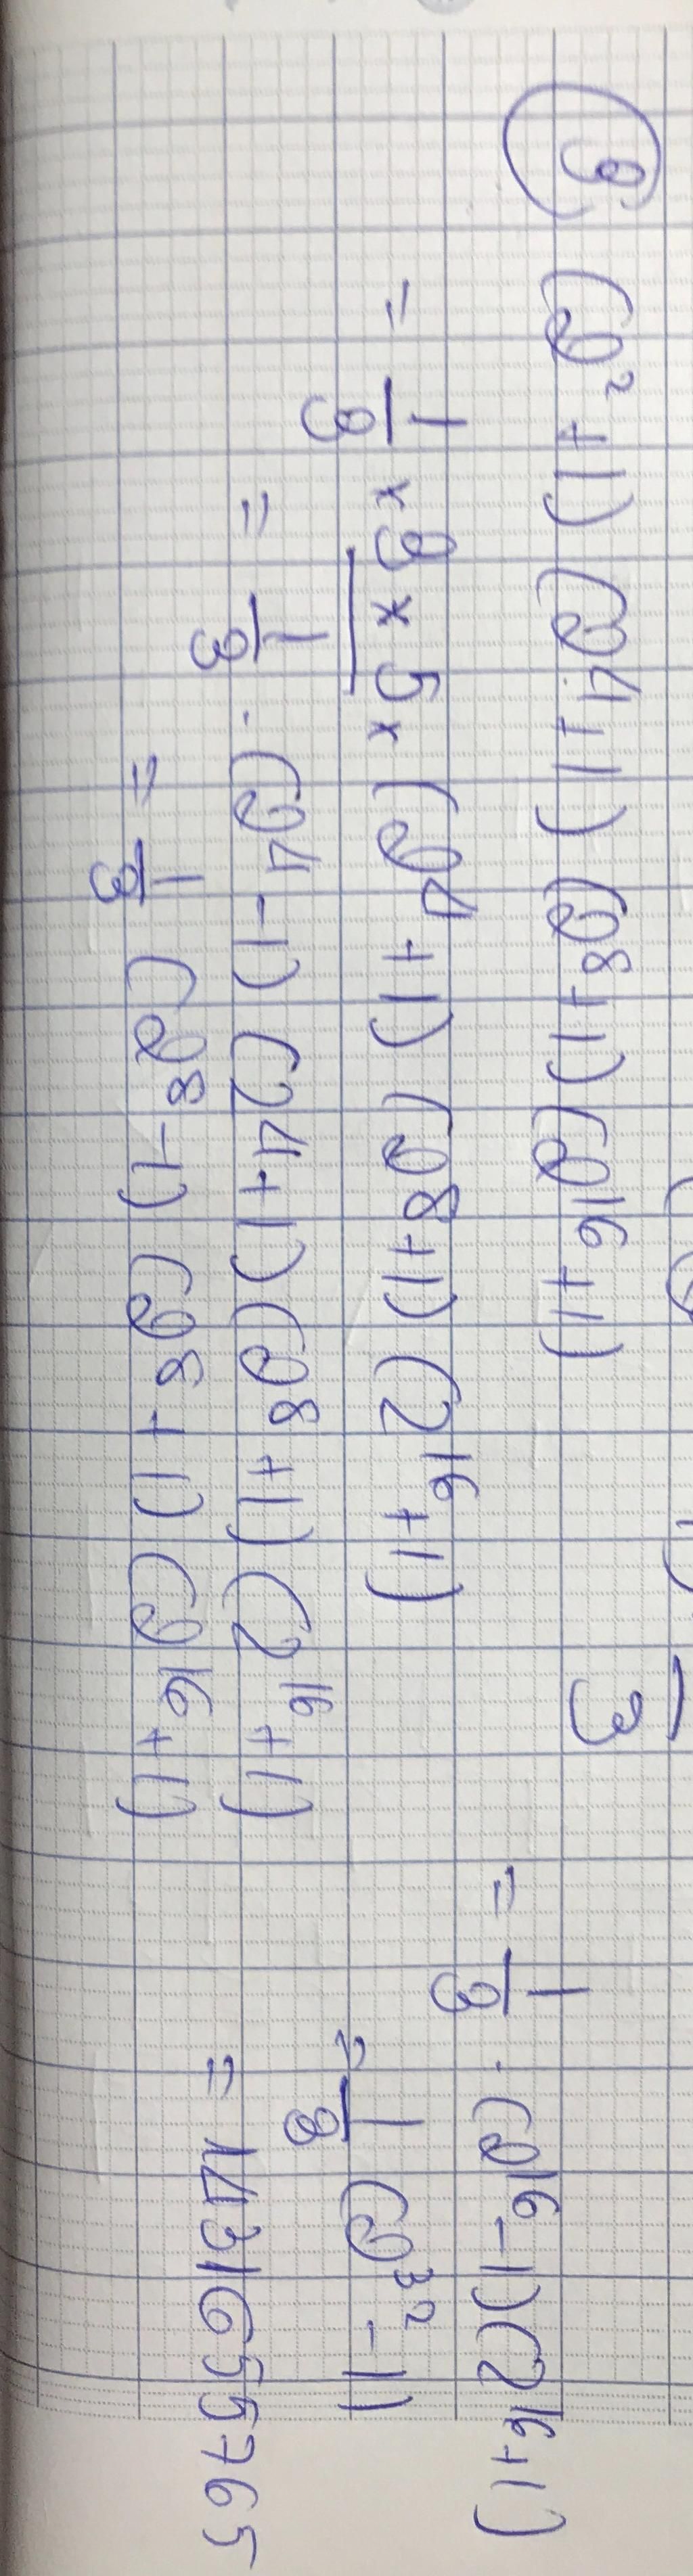 9) (2² + 1) (2⁴ + 1) (2⁸ + 1) (2¹⁶ + 1)
= 1/3 × 3 × 5 × (2⁴ + 1) (2⁸ + 1) (2¹⁶ + 1)
= 1/3 . (2⁴ - 1) (2⁴ + 1) (2⁸ + 1) (2¹⁶ + 1)
= 1/3 (2⁸ - 1) (2⁸ + 1) (2¹⁶ + 1)
= 1/3 . (2¹⁶ - 1) (2¹⁶ + 1)
= 1/3 (2³² - 1)
= 1431655765
3